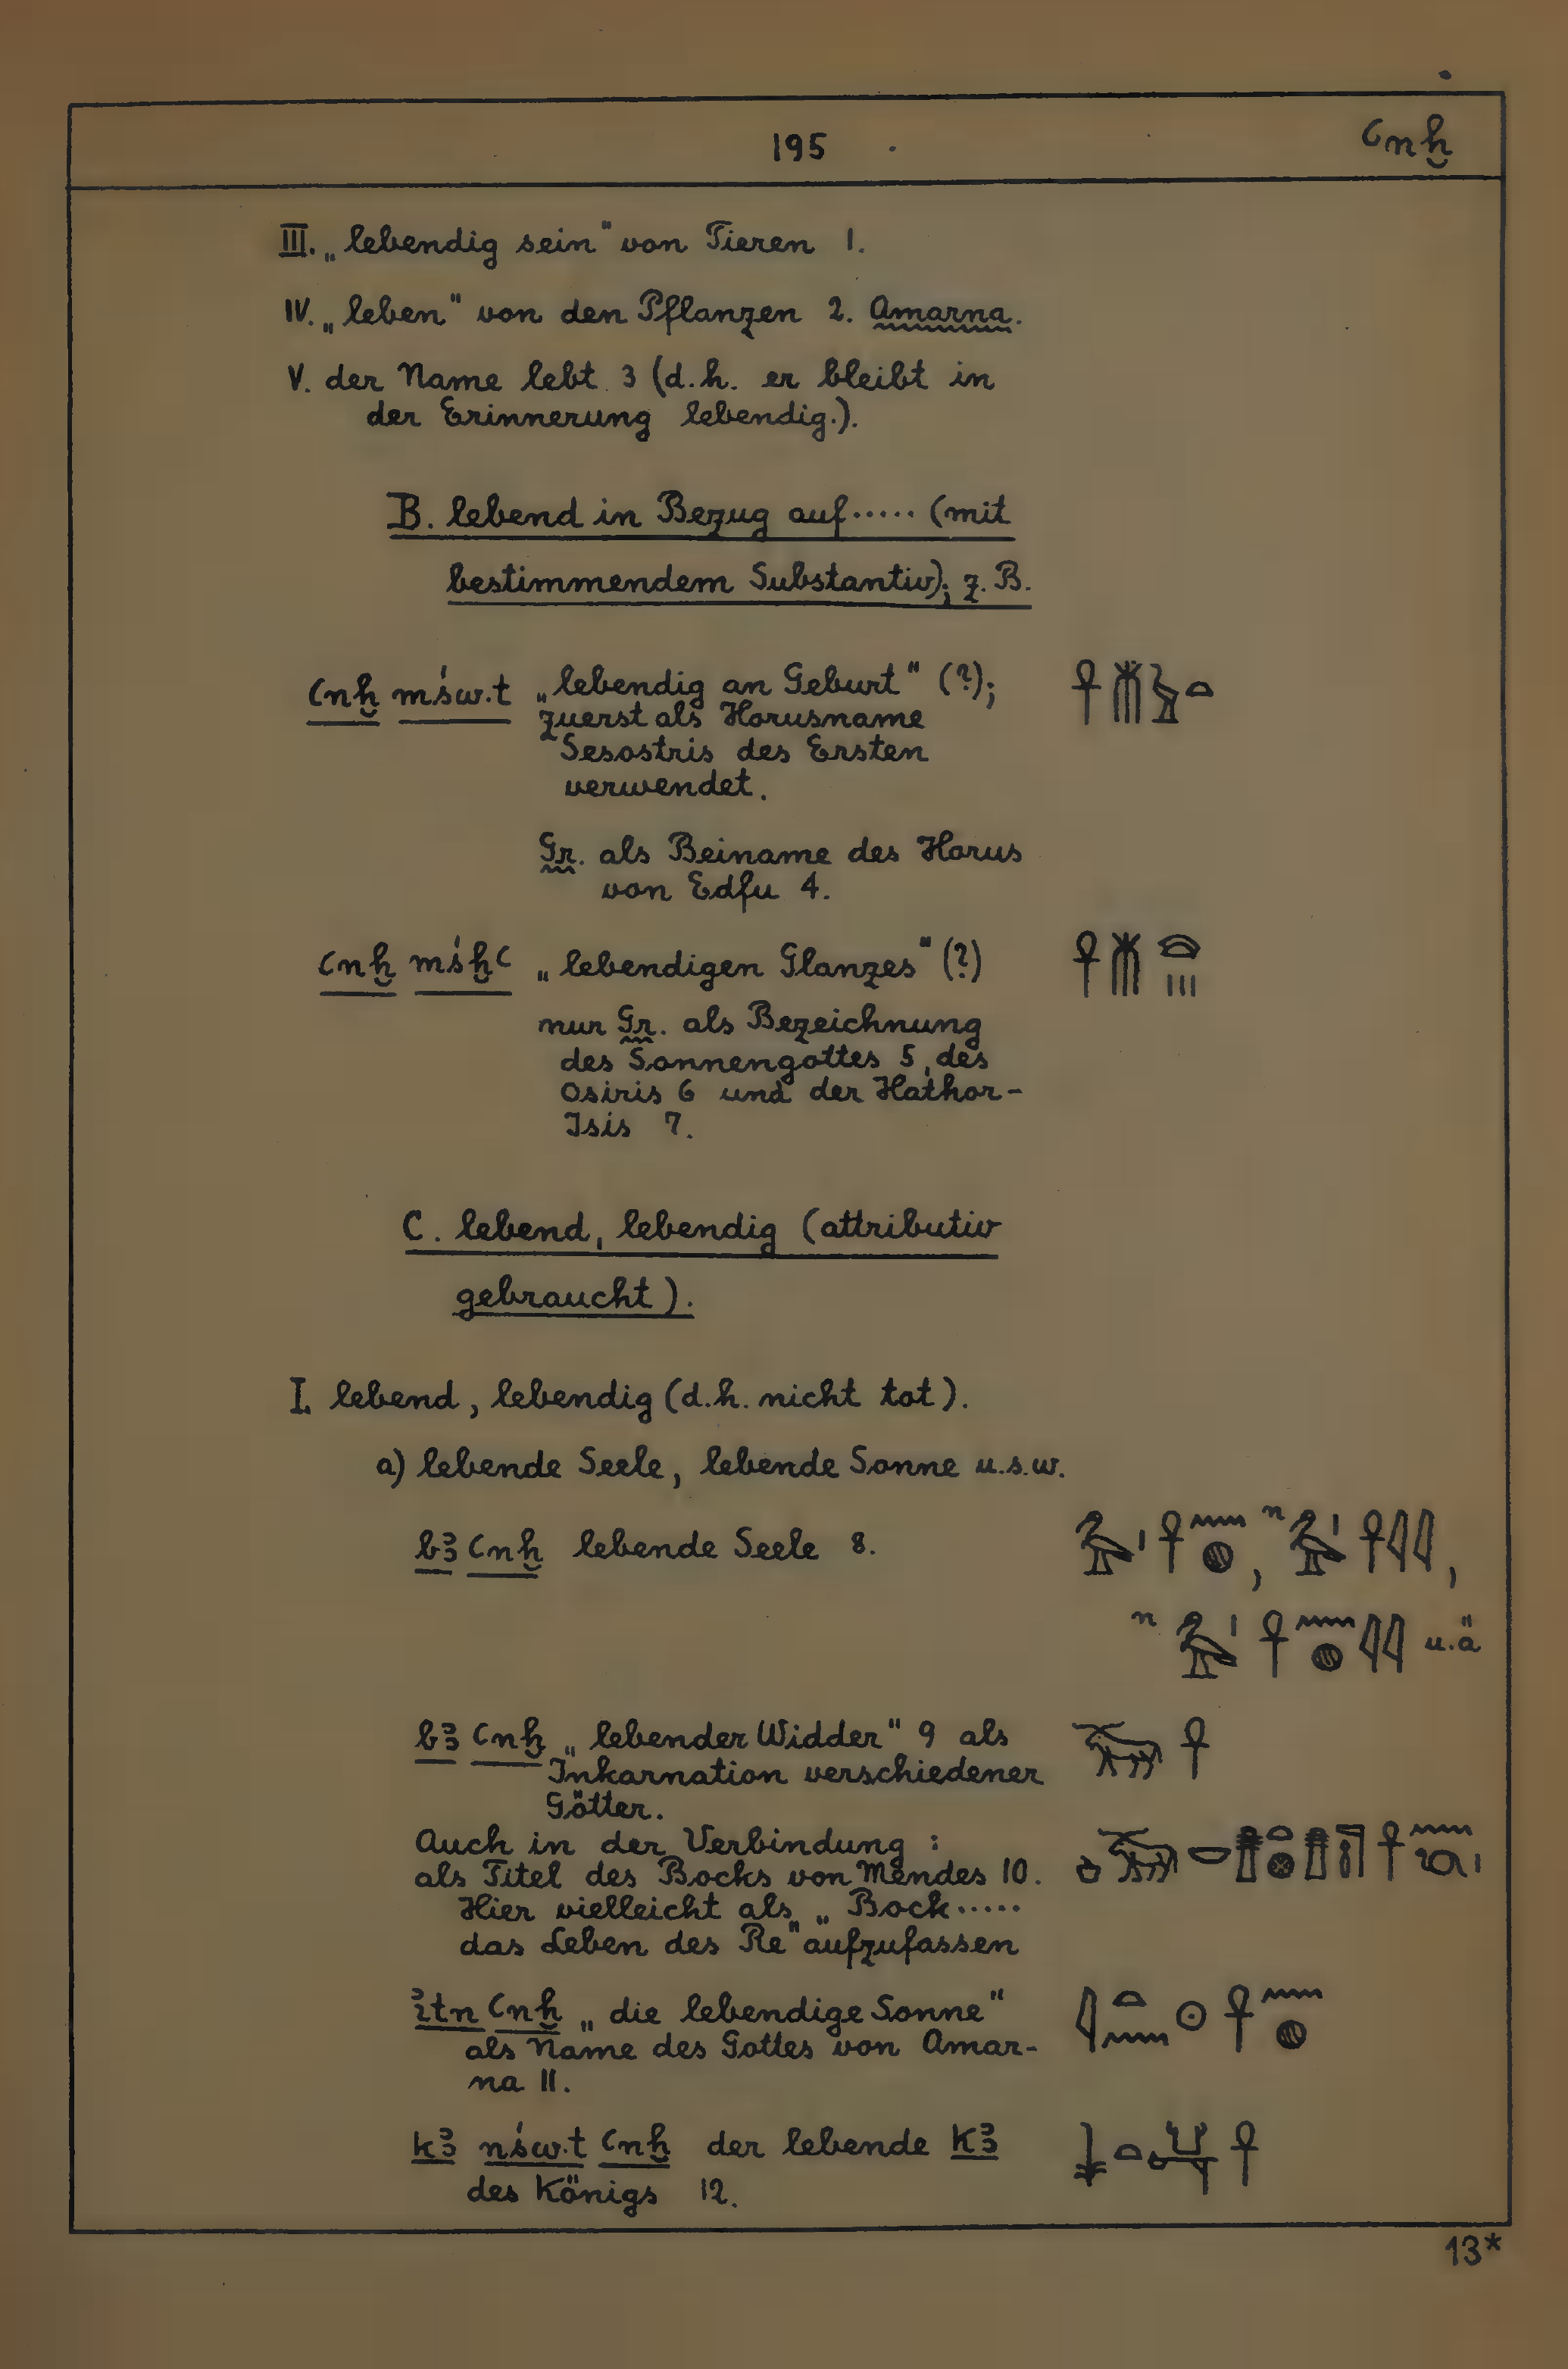 195
ꜥnḫ
III. „lebendig sein" von Tieren 1.
IV. „leben" von den Pflanzen 2. Amarna.
V. der Name lebt 3 (d.h. er bleibt in
der Erinnerung lebendig.).
B. lebend in Bezug auf..... (mit
bestimmendem Substantiv); z. B.
ꜥnḫ mśw.t „lebendig an Geburt" (?); 𓋹𓄟𓅱𓏏
zuerst als Horusname
Sesostris des Ersten
verwendet.
Gr. als Beiname des Horus
von Edfu 4.
ꜥnḫ mśḫꜥ „lebendigen Glanzes" (?) 𓋹𓄟𓈍𓏥
nur Gr. als Bezeichnung
des Sonnengottes 5, des
Osiris 6 und der Hathor-
Isis 7.
C. lebend, lebendig (attributiv
gebraucht).
I. lebend, lebendig (d.h. nicht tot).
a) lebende Seele, lebende Sonne u.s.w.
bꜣ ꜥnḫ lebende Seele 8. 𓅡𓏤𓋹𓈖𓐍, n 𓅡𓏤𓋹𓇋𓇋,
n 𓅡𓏤𓋹𓈖𓐍𓇋𓇋 u.ä
bꜣ ꜥnḫ „lebender Widder" 9 als 𓃝𓋹
Inkarnation verschiedener
Götter.
Auch in der Verbindung :
als Titel des Bocks von Mendes 10.
Hier vielleicht als „Bock.....
das Leben des Re" aufzufassen
ꞽtn ꜥnḫ „die lebendige Sonne" 𓇋𓏏𓈖𓇳𓋹𓈖𓐍
als Name des Gottes von Amar-
na 11.
kꜣ nśw.t ꜥnḫ der lebende kꜣ 𓇓𓏏𓂓𓋹
des Königs 12.
13*